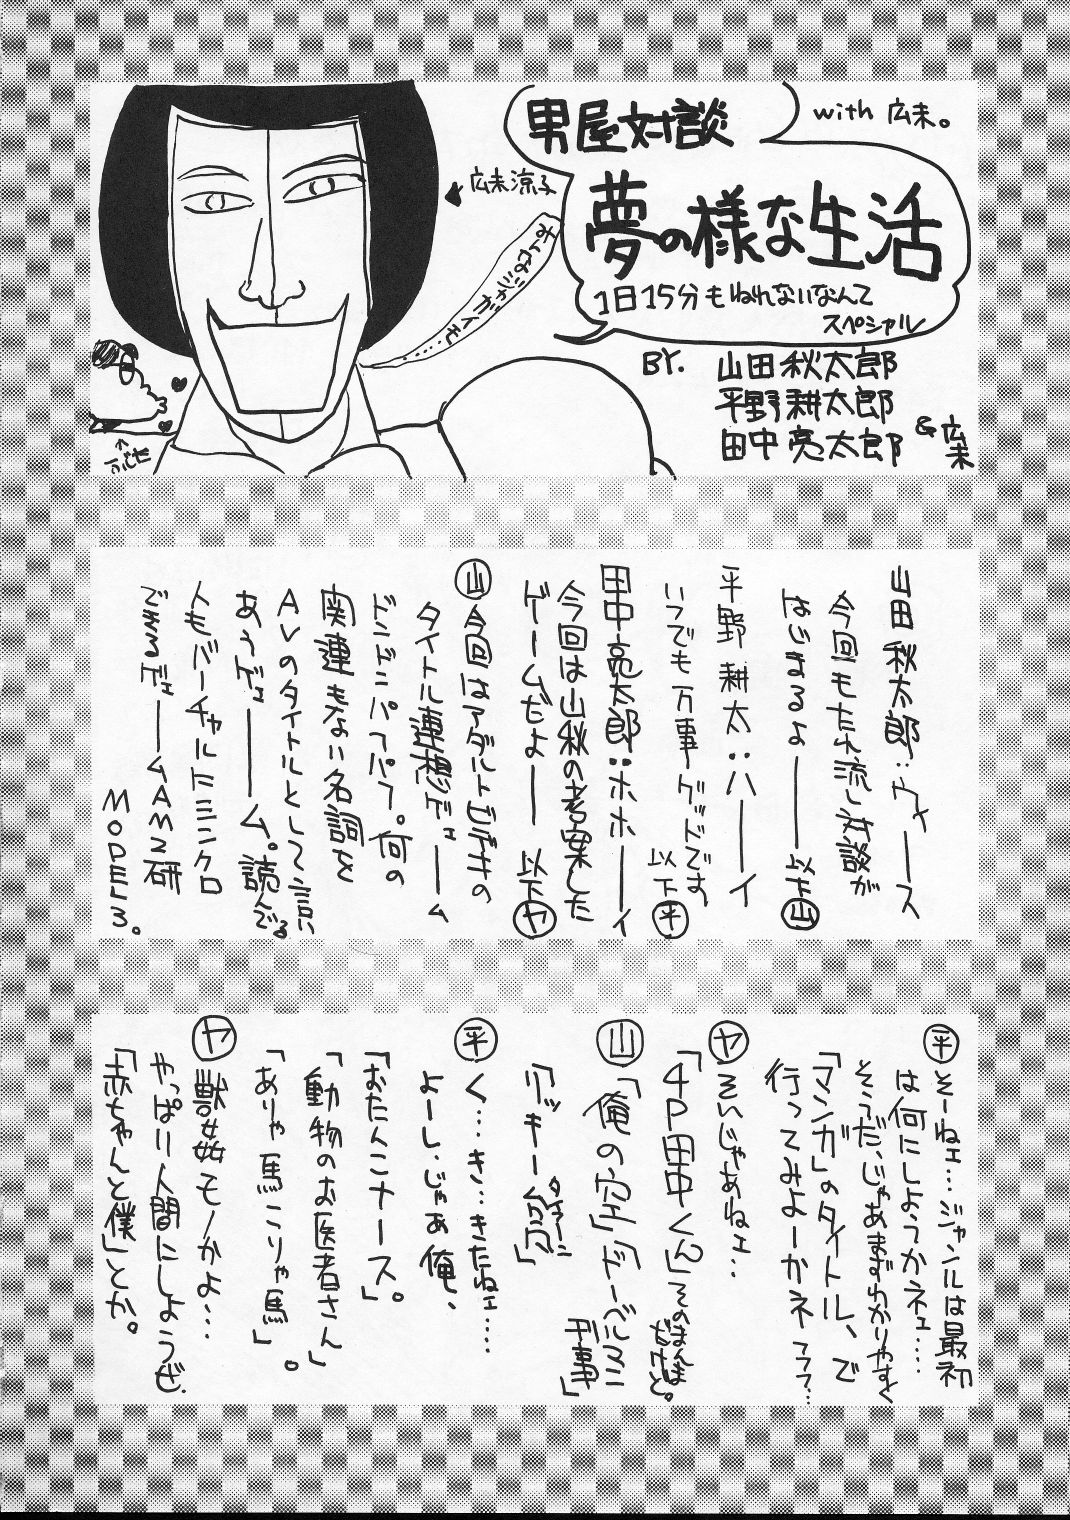 男屋対談
with 広末。
夢の様な生活
1日15分もねれないなんて
スペシャル
広末涼子
ぼくはジャガイモ……
BY. 山田秋太郎
平野耕太郎
田中亮太郎
&広末
山田秋太郎：ウィース
今回もたれ流し対談が
はじまるよ―― 以下㊤山
平野耕太：ハーイ
いつでも万事グッドです
以下㊤平
田中亮太郎：ホホーイ
今回は山秋の考案した
ゲームだよ―― 以下ヤ
山 今回はアダルトビデオの
タイトル連想ゲェーム
ドンドンパフパフ。何の
関連もない名詞を
AVのタイトルとして言い
あうゲェ――ム。読んでる
人もバーチャルにシンクロ
できるゲェ――ムAM2研
MODEL3。
平 そーねェ…ジャンルは最初
は何にしようかネェ……
そうだ、じゃあまずわかりやすく
「マンガ」のタイトル、で
行ってみよーかネフフフ…
ヤ そいじゃあねェ…
「4P田中くん」そのまんま
だけど。
山 「俺の空」「ドーベルマン
刑事」
「リッキー台風」
タイフーン
平 く…き…きたねェ……
よーし、じゃあ俺、
「おたんこナース」。
「動物のお医者さん」
「ありゃ馬こりゃ馬」。
ヤ 獣姦モノかよ…
やっぱり人間にしようぜ。
「赤ちゃんと僕」とか。